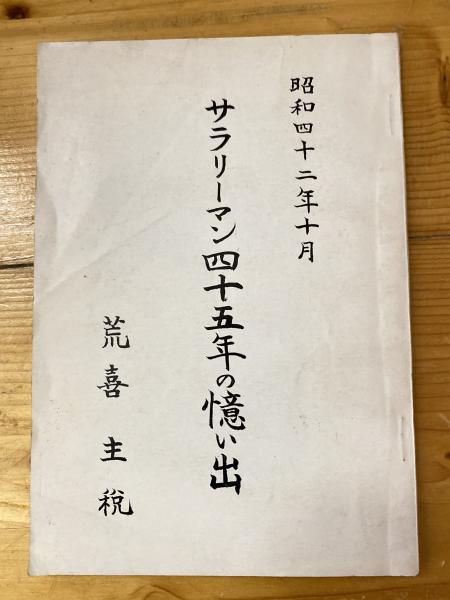 昭和四十二年十月
サラリーマン四十五年の憶い出
荒喜主税